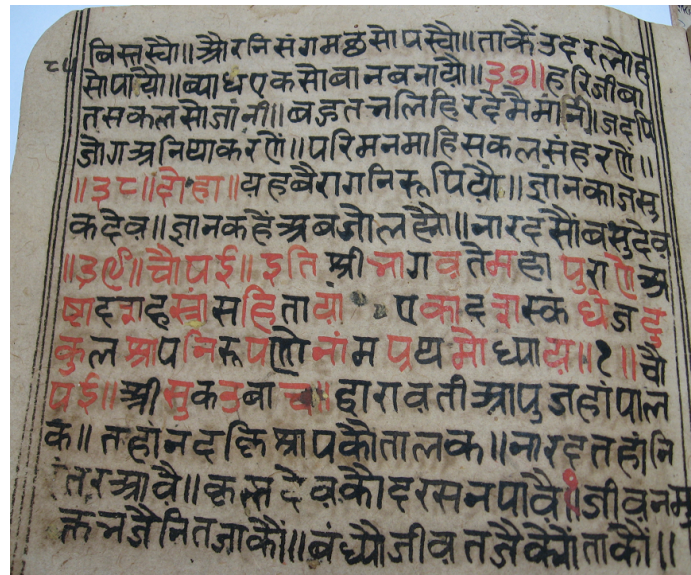 बिस्तस्यौ॥ औरनि संगम छंसोपस्यौ॥ ताकैं उदर लोह
सोपायौ॥ ब्याध एक सो बान बनायौ॥३७॥ हरि जी बा
त सकल सो जांनी॥ बहुत भलि हिरदै मै मांनी॥ जदपि
जोग अनिथा करणे॥ परि मन माहि सकल संहरणे॥
॥३८॥ दोहा॥ यह बैराग निरूपियौ॥ ज्ञान काज सु
कदेव॥ ज्ञान कहै अब जो लह्यौ॥ नारद सौं बसुदेव
॥३९॥ चौपई॥ इति श्री भागवते महापुराणे अ
ष्टादशहस्रां सहितायां एकादशस्कंधे जदु
कुल श्राप निरूपणो नांम प्रथमोध्याय॥१॥ चौ
पई॥ श्री सुक उबाच॥ द्वारावती आपु जहां पाल
क॥ तहां न दछि श्राप कौ तालक॥ नारद तहां नि
तर आवै॥ कृस्न देव कौ दरसन पावै॥१॥ जीवनमु
क्त भजै नित जाकौं॥ बंध्यौ जीव तजै क्यौ ताकौ॥